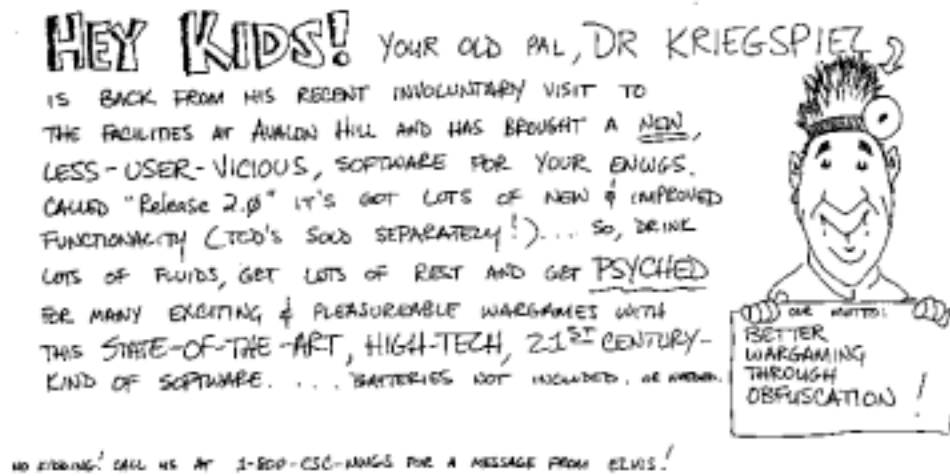 HEY KIDS! YOUR OLD PAL, DR KRIEGSPIEL
IS BACK FROM HIS RECENT INVOLUNTARY VISIT TO
THE FACILITIES AT AVALON HILL AND HAS BROUGHT A NEW,
LESS-USER-VICIOUS, SOFTWARE FOR YOUR ENWGS.
CALLED "Release 2.0" IT'S GOT LOTS OF NEW & IMPROVED
FUNCTIONALITY (TCD'S SOLD SEPARATELY!)... SO, DRINK
LOTS OF FLUIDS, GET LOTS OF REST AND GET PSYCHED
FOR MANY EXCITING & PLEASUREABLE WARGAMES WITH
THIS STATE-OF-THE-ART, HIGH-TECH, 21ST CENTURY-
KIND OF SOFTWARE. ... BATTERIES NOT INCLUDED. OR NEEDED.
OUR MOTTO:
BETTER
WARGAMING
THROUGH
OBFUSCATION!
NO KIDDING! CALL US AT 1-800-CSC-NWGS FOR A MESSAGE FROM ELVIS!